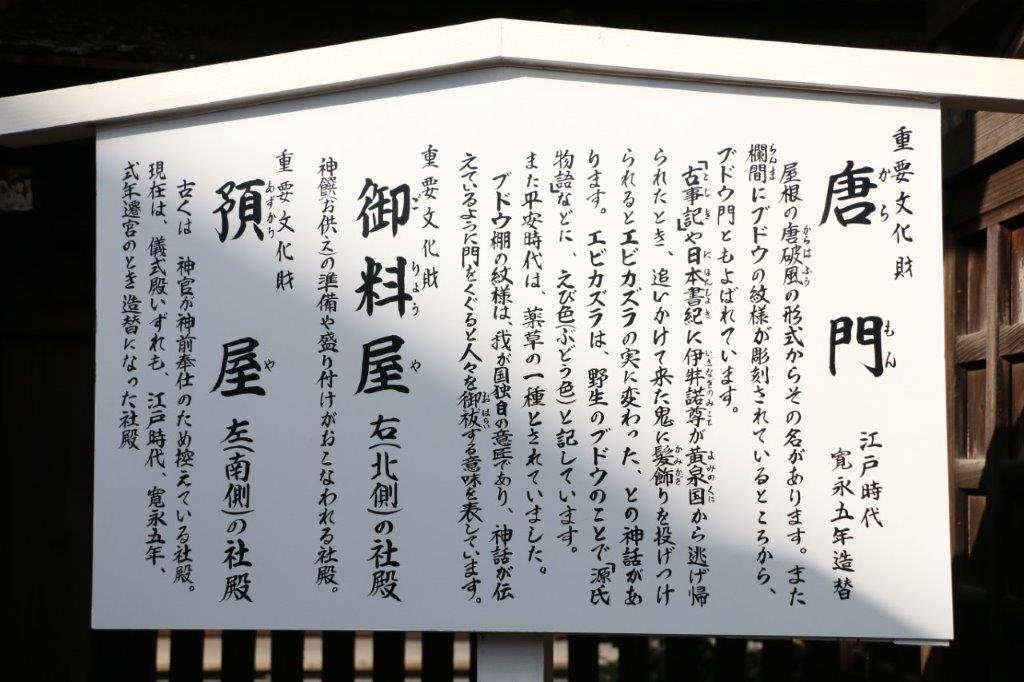 重要文化財
から もん
唐門
江戸時代
寛永五年造替
からはふう
屋根の唐破風の形式からその名があります。また
らんま
欄間にブドウの紋様が彫刻されているところから、
ブドウ門ともよばれています。
こじき にほんしょき いざなぎのみこと よみのくに
「古事記」や日本書紀に伊弉諾尊が黄泉国から逃げ帰
かみかざ
られたとき、追いかけて来た鬼に髪飾りを投げつけ
られるとエビカズラの実に変わった、との神話があ
ります。エビカズラは、野生のブドウのことで「源氏
物語」などに、えび色(ぶどう色)と記しています。
また平安時代は、薬草の一種とされていました。
ブドウ棚の紋様は、我が国独自の意匠であり、神話が伝
おはらい
えているように門をくぐると人々を御祓する意味を表しています。
重要文化財
ご りょう や
御料屋 右(北側)の社殿
神饌(お供え)の準備や盛り付けがおこなわれる社殿。
重要文化財
あずかり や
預屋 左(南側)の社殿
古くは 神官が神前奉仕のため控えている社殿。
現在は、儀式殿いずれも、江戸時代、寛永五年、
式年遷宮のとき造替になった社殿